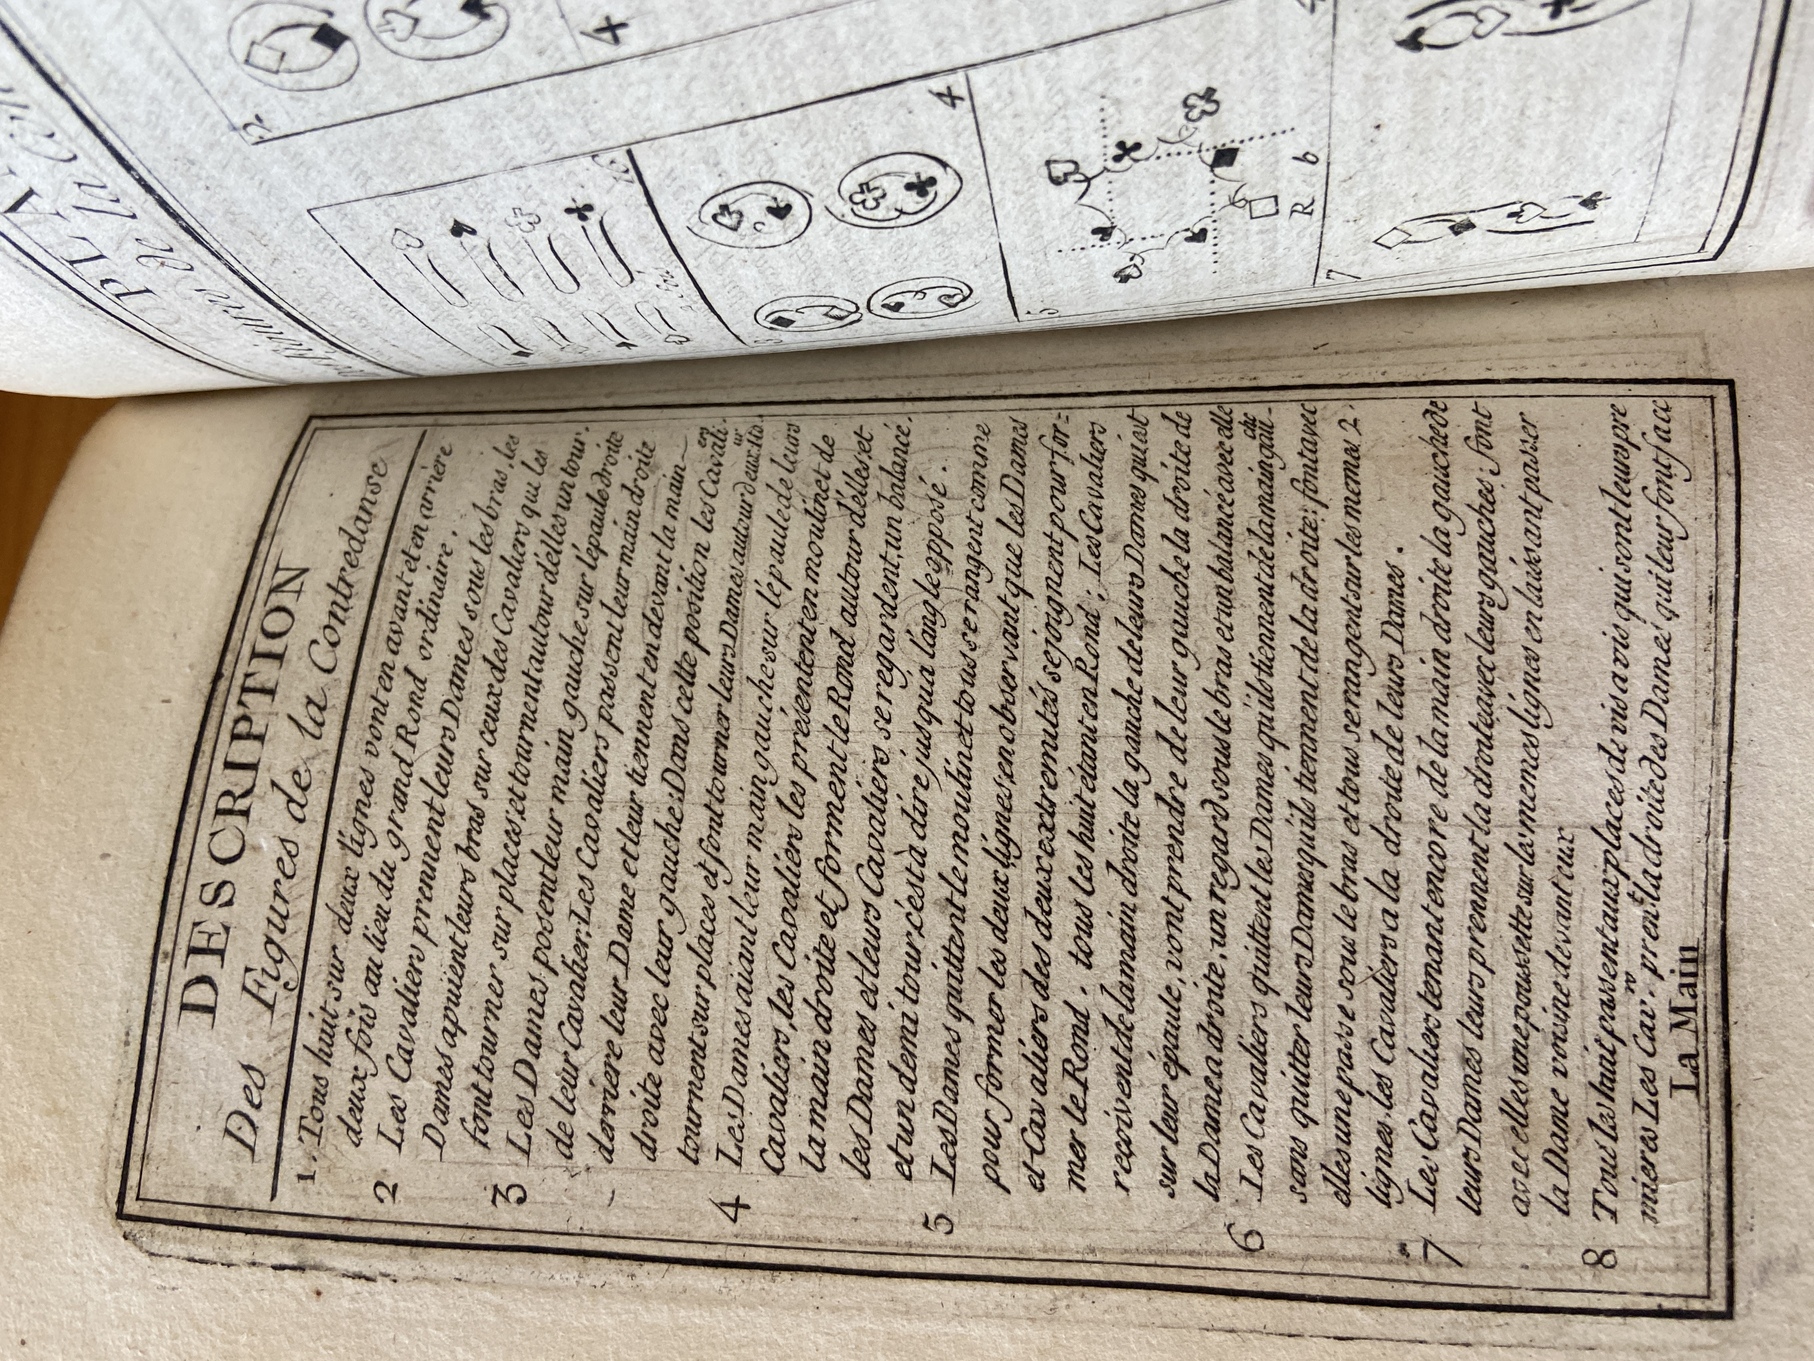 DESCRIPTION
Des Figures de la Contredanse
1. Tous huit sur deux lignes vont en avant et en arriére
deux fois au lieu du grand Rond ordinaire.
2 Les Cavaliers prennent leurs Dames sous les bras, les
Dames apuient leurs bras sur ceux des Cavaliers qui les
font tourner sur places, et tournent autour d'elles un tour.
3 Les Dames posent leur main gauche sur l'épaule droite
de leur Cavalier, Les Cavaliers passent leur main droite
derriere leur Dame et leur tiennent en devant la main
droite avec leur gauche: Dans cette position les Cavali.ers
tournent sur places et font tourner leurs Dames autour d'eux
4 Les Dames aiant leur main gauche sur l'épaule de leurs
Cavaliers, les Cavaliers les présentent en moulinet de
la main droite et forment le Rond autour d'elles et
les Dames et leurs Cavaliers se regardent, un balancé.
et un demi tour c'est à dire jusqu'a l'angle opposé.
5 Les Dames quittent le moulinet et tous se rangent comme
pour former les deux lignes, en observant que les Dames
et Cavaliers des deux extremités se joignent pour for=
mer le Rond. tous les huit étant en Rond; Les Cavaliers
reçoivent de la main droite la gauche de leurs Dames qui est
sur leur épaule, vont prendre de leur gauche la droite de
la Dame a droite, un regard sous le bras et un balancé avec elle
6 Les Cavaliers quittent les Dames qu'ils tiennent de la main gau.che
sans quiter leurs Dames qu'ils tiennent de la droite: font avec
elles une passe sous le bras et tous se rangent sur les memes 2.
lignes, les Cavaliers a la droite de leurs Dames.
7 Les Cavaliers tenant encore de la main droite la gauche de
leurs Dames leurs prennent la droite avec leurs gauches; font
avec elles une poussette sur les mêmes lignes en laissant passer
la Dame voisine devant eux
8 Tous les huit passent aux places de vis a vis qui sont leurs pre
mieres Les Cav.rs pren.t la droite des Dames qui leur font face
La Main
2
4
3
4
5
R 6
7